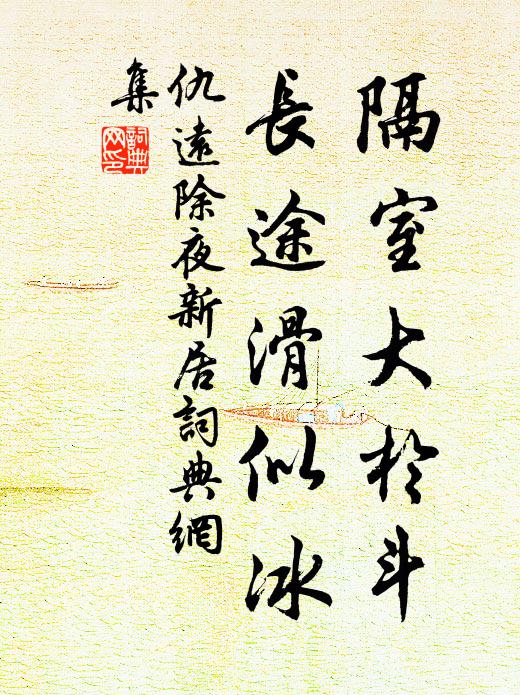 隔室大於斗
長途滑似冰
仇遠除夜新居詞典網
集
詞典
网印